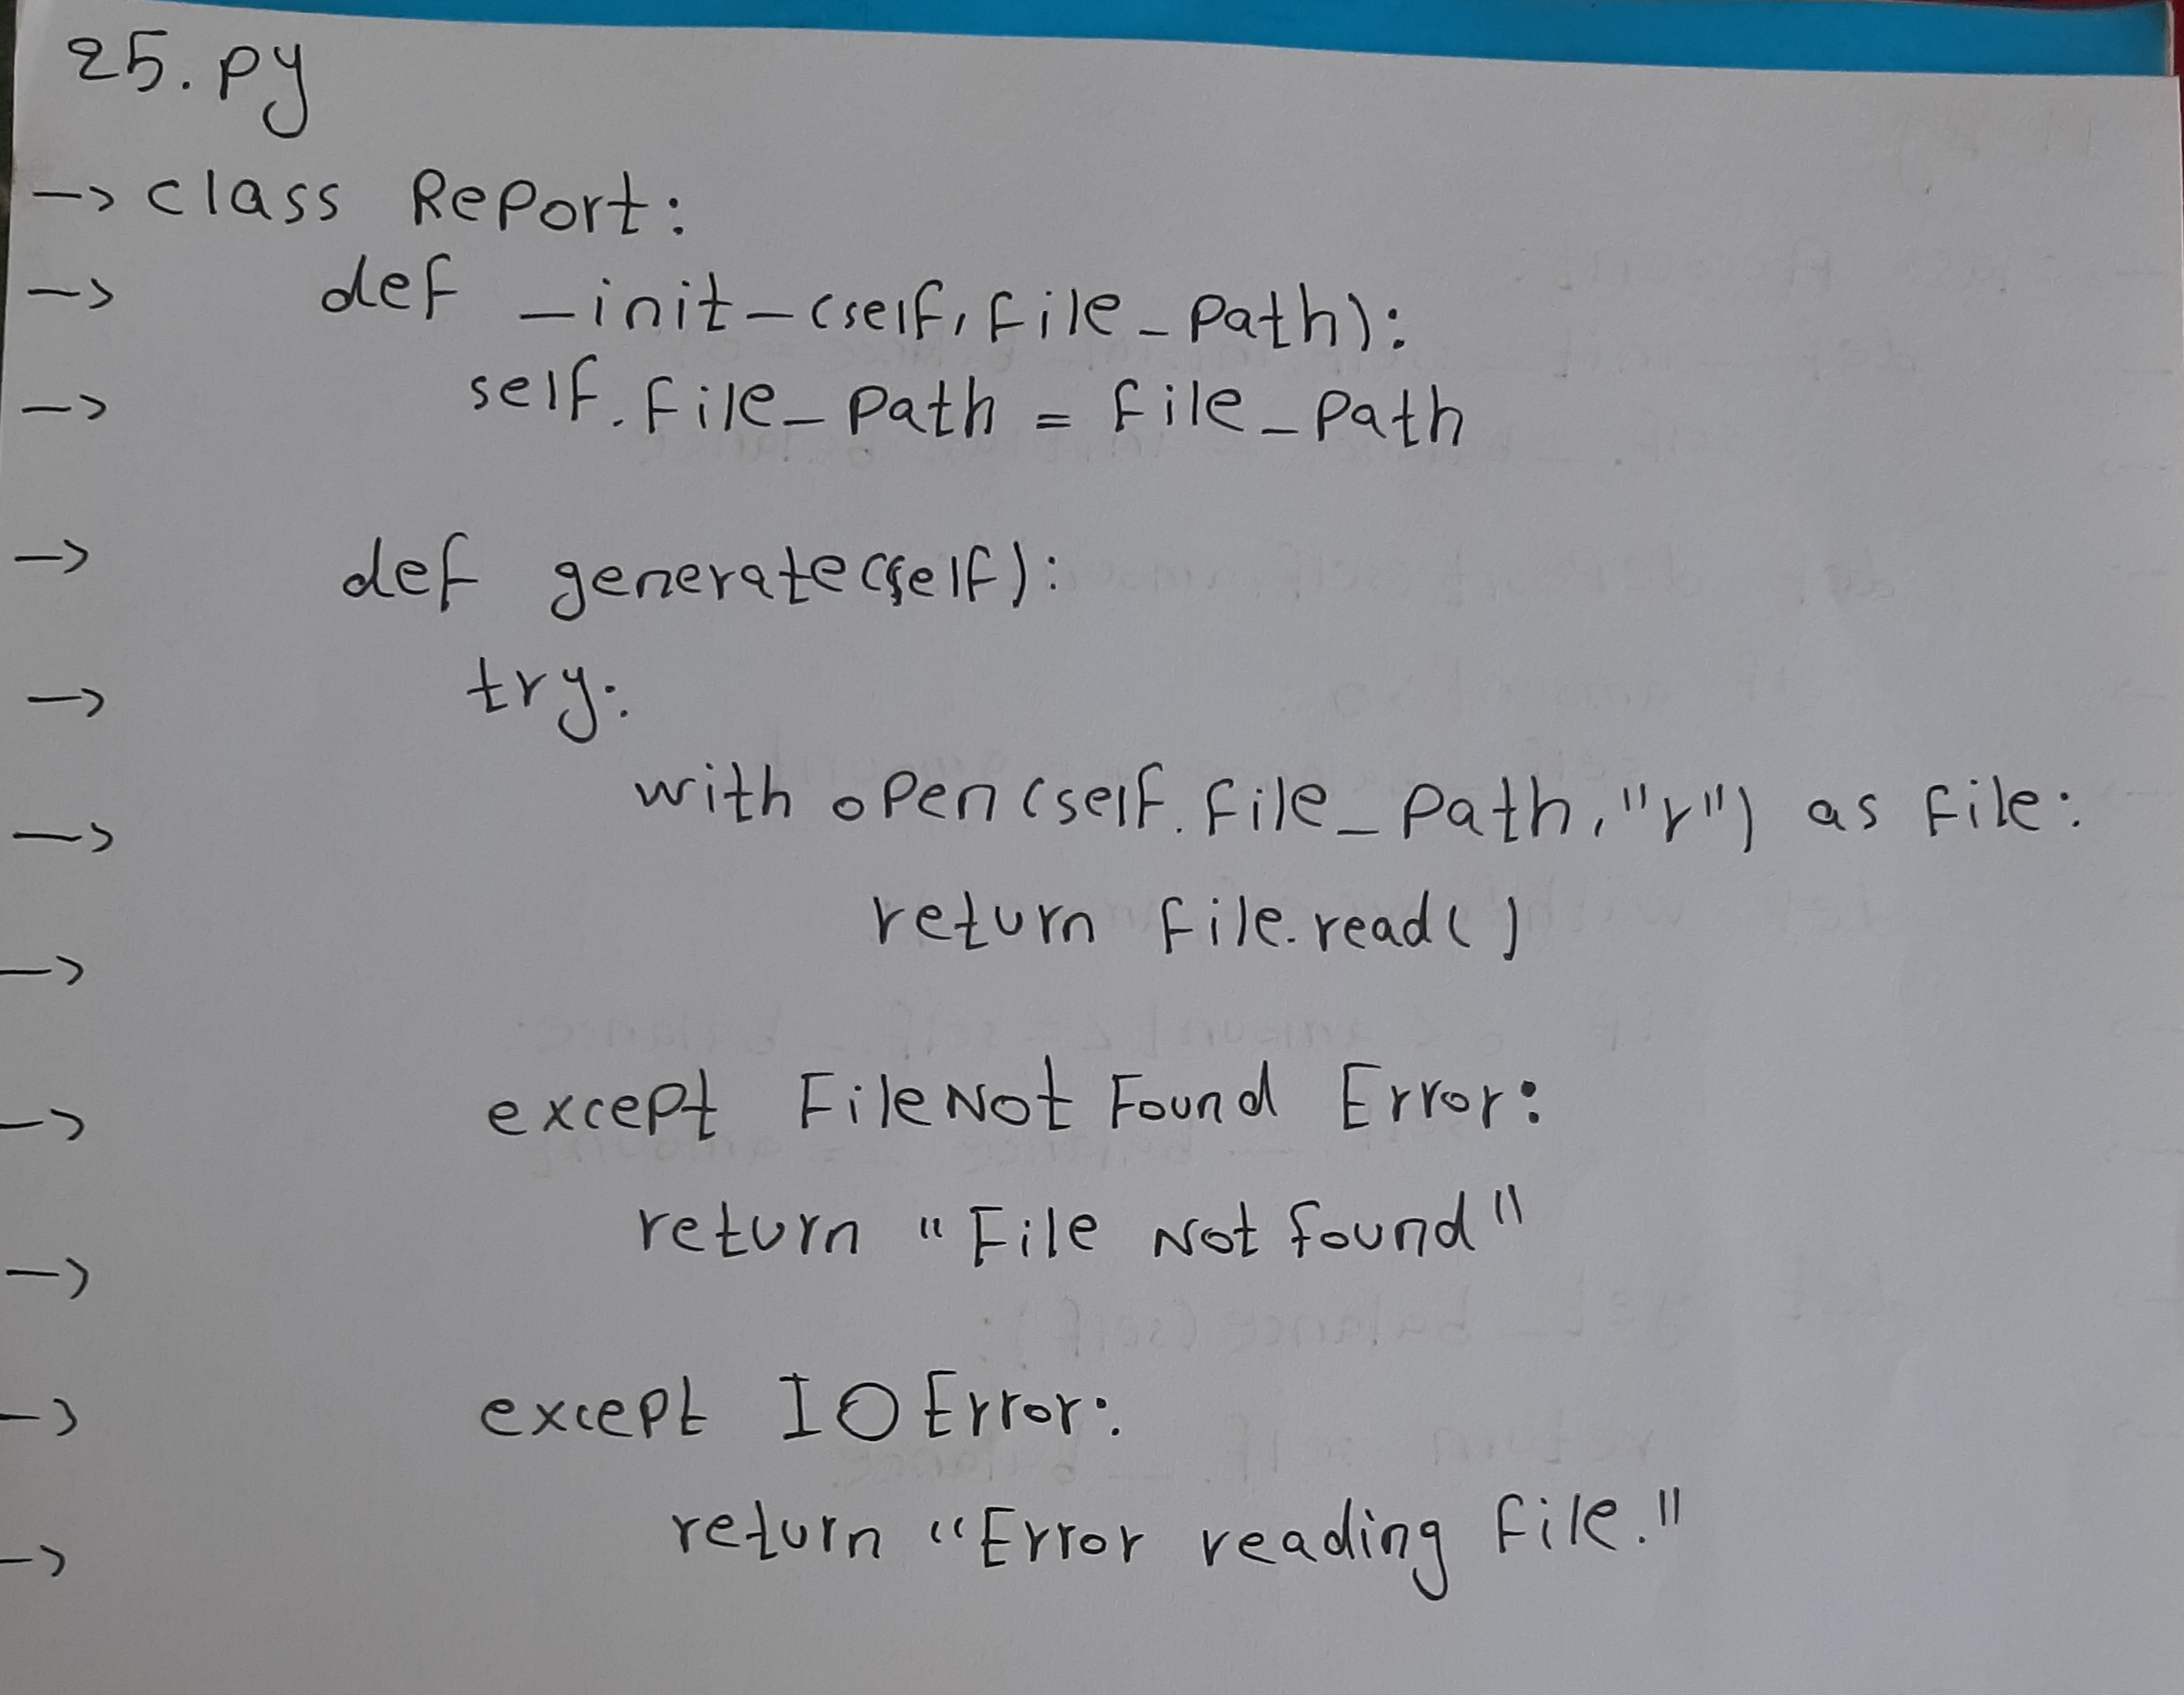 25.py
-> class Report:
->     def _init_(self, file_path):
->         self.file_path = file_path
->     def generate(self):
->         try:
->             with open(self.file_path, "r") as file:
->                 return file.read()
->         except FileNot Found Error:
->             return "File Not found"
->         except IO Error:
->             return "Error reading file."